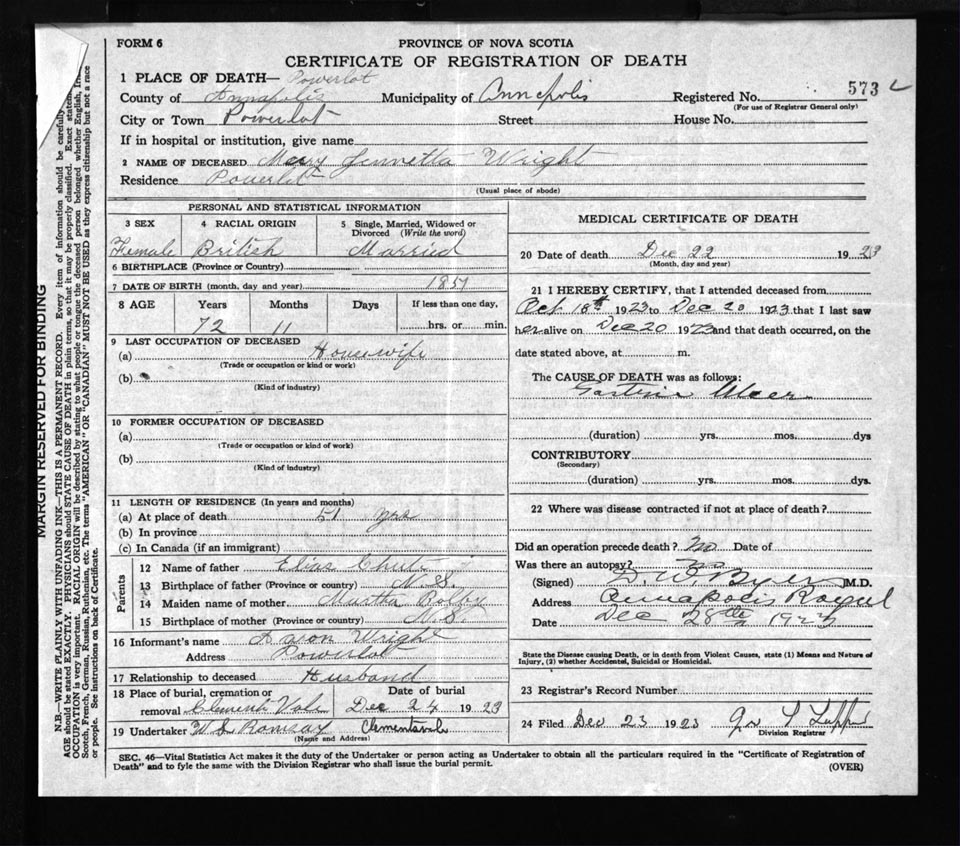 FORM 6
PROVINCE OF NOVA SCOTIA
CERTIFICATE OF REGISTRATION OF DEATH
573
1 PLACE OF DEATH— Powerlot
County of Annapolis Municipality of Annapolis Registered No.
(For use of Registrar General only)
City or Town Powerlot Street House No.
If in hospital or institution, give name
2 NAME OF DECEASED Mary Jennetta Wright
Residence Powerlot
(Usual place of abode)
PERSONAL AND STATISTICAL INFORMATION
3 SEX 4 RACIAL ORIGIN 5 Single, Married, Widowed or Divorced (Write the word)
Female British Married
6 BIRTHPLACE (Province or Country)
7 DATE OF BIRTH (month, day and year) 1851
8 AGE Years Months Days If less than one day,
72 11 hrs. or min.
9 LAST OCCUPATION OF DECEASED
(a) Housewife
(Trade or occupation or kind or work)
(b)
(Kind of industry)
10 FORMER OCCUPATION OF DECEASED
(a)
(Trade or occupation or kind of work)
(b)
(Kind of industry)
11 LENGTH OF RESIDENCE (In years and months)
(a) At place of death 51 yrs
(b) In province
(c) In Canada (if an immigrant)
Parents
12 Name of father Elias Chute
13 Birthplace of father (Province or country) N.S.
14 Maiden name of mother
15 Birthplace of mother (Province or country) N.S.
16 Informant's name Aaron Wright
Address Powerlot
17 Relationship to deceased Husband
18 Place of burial, cremation or removal Clements Vale Date of burial Dec 24 1923
19 Undertaker W S Romsay Clementsvale
(Name and Address)
MEDICAL CERTIFICATE OF DEATH
20 Date of death Dec 22 1923
(Month, day and year)
21 I HEREBY CERTIFY, that I attended deceased from
Oct 18th 1923 to Dec 20 1923 that I last saw
her alive on Dec 20 1923 and that death occurred, on the
date stated above, at m.
The CAUSE OF DEATH was as follows:
Gastric Ulcer
(duration) yrs. mos. dys
CONTRIBUTORY
(Secondary)
(duration) yrs. mos. dys.
22 Where was disease contracted if not at place of death?
Did an operation precede death? No Date of
Was there an autopsy? No
(Signed) M.D.
Address Annapolis Royal
Date Dec 28th 1923
State the Disease causing Death, or in death from Violent Causes, state (1) Means and Nature of
Injury, (2) whether Accidental, Suicidal or Homicidal.
23 Registrar's Record Number
24 Filed Dec 23 1923
Division Registrar
SEC. 46—Vital Statistics Act makes it the duty of the Undertaker or person acting as Undertaker to obtain all the particulars required in the "Certificate of Registration of
Death" and to fyle the same with the Division Registrar who shall issue the burial permit.
(OVER)
MARGIN RESERVED FOR BINDING
N.B.—WRITE PLAINLY WITH UNFADING INK—THIS IS A PERMANENT RECORD. Every item of information should be carefully
AGE should be stated EXACTLY. PHYSICIANS should STATE CAUSE OF DEATH in plain terms, so that it may be properly classified. Exact
OCCUPATION is very important. RACIAL ORIGIN will be described by stating to what people or tongue the deceased person belonged whether English,
Scotch, French, German, Russian, Ruthenian, etc. The terms "AMERICAN" OR "CANADIAN" MUST NOT BE USED as they express citizenship but not a race
or people. See instructions on back of Certificate.